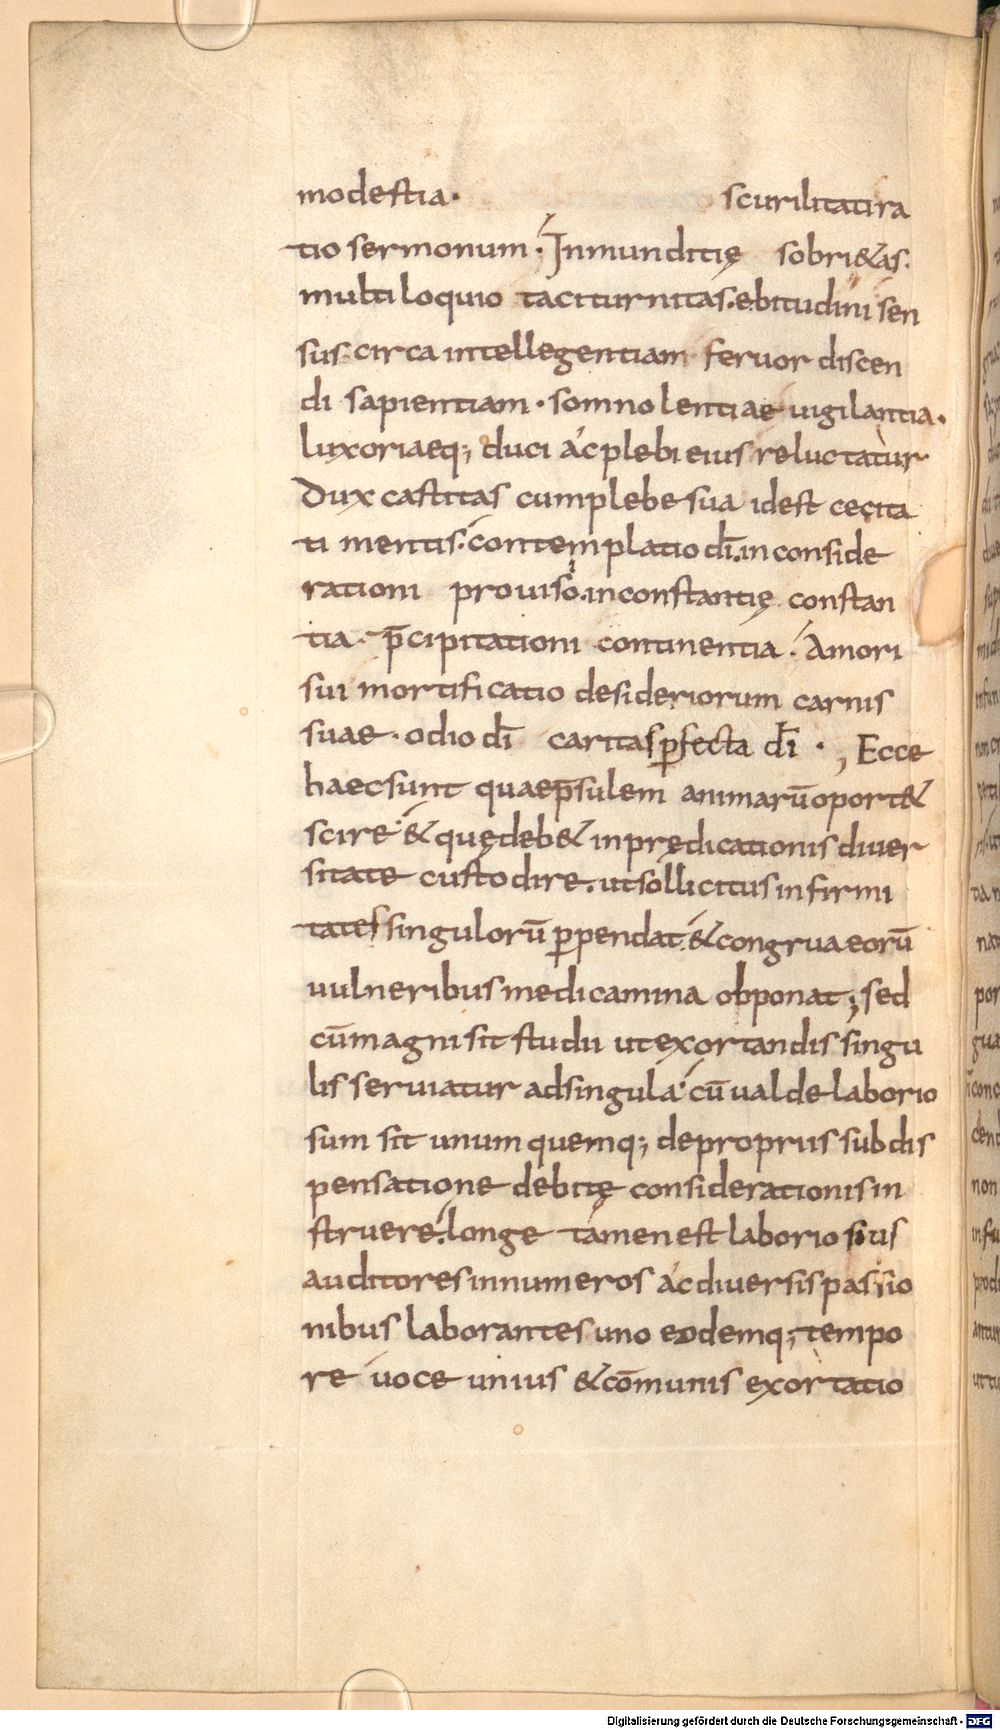 modestia· scurilitati ra
tio sermonum· Inmunditię sobri&as.
multiloquio taciturnitas. ebitudini sen
sus circa intellegentiam feruor discen
di sapientiam· somnolentiae uigilantia·
luxoriaeq; duci ac plebi eius reluctatur
Dux castitas cum plebe sua id est cęcita
ti mentis. contemplatio dī. in conside
rationi prouisio. inconstantię constan
tia· p̄cipitationi continentia· Amori
sui mortificatio desideriorum carnis
suae· odio dī caritas ꝑfecta dī ·, Ecce
haec sunt quae p̄sulem animarū oport&
scire & quę deb& in prędicationis diuer
sitate custodire. ut sollicitus infirmi
tates singulorū ꝑpendat. & congrua eorū
uulneribus medicamina obponat; sed
cū magni sit studii ut exortandis singu
lis seruiatur ad singula. cū ualde laborio
sum sit unumquemq; de propriis sub dis
pensatione debitę considerationis in
struere. longe tamen est laboriosius
auditores innumeros ac diuersis passio
nibus laborantes uno eodemq; tempo
re uoce unius & cōmunis exortatio
Digitalisierung gefördert durch die Deutsche Forschungsgemeinschaft - DFG